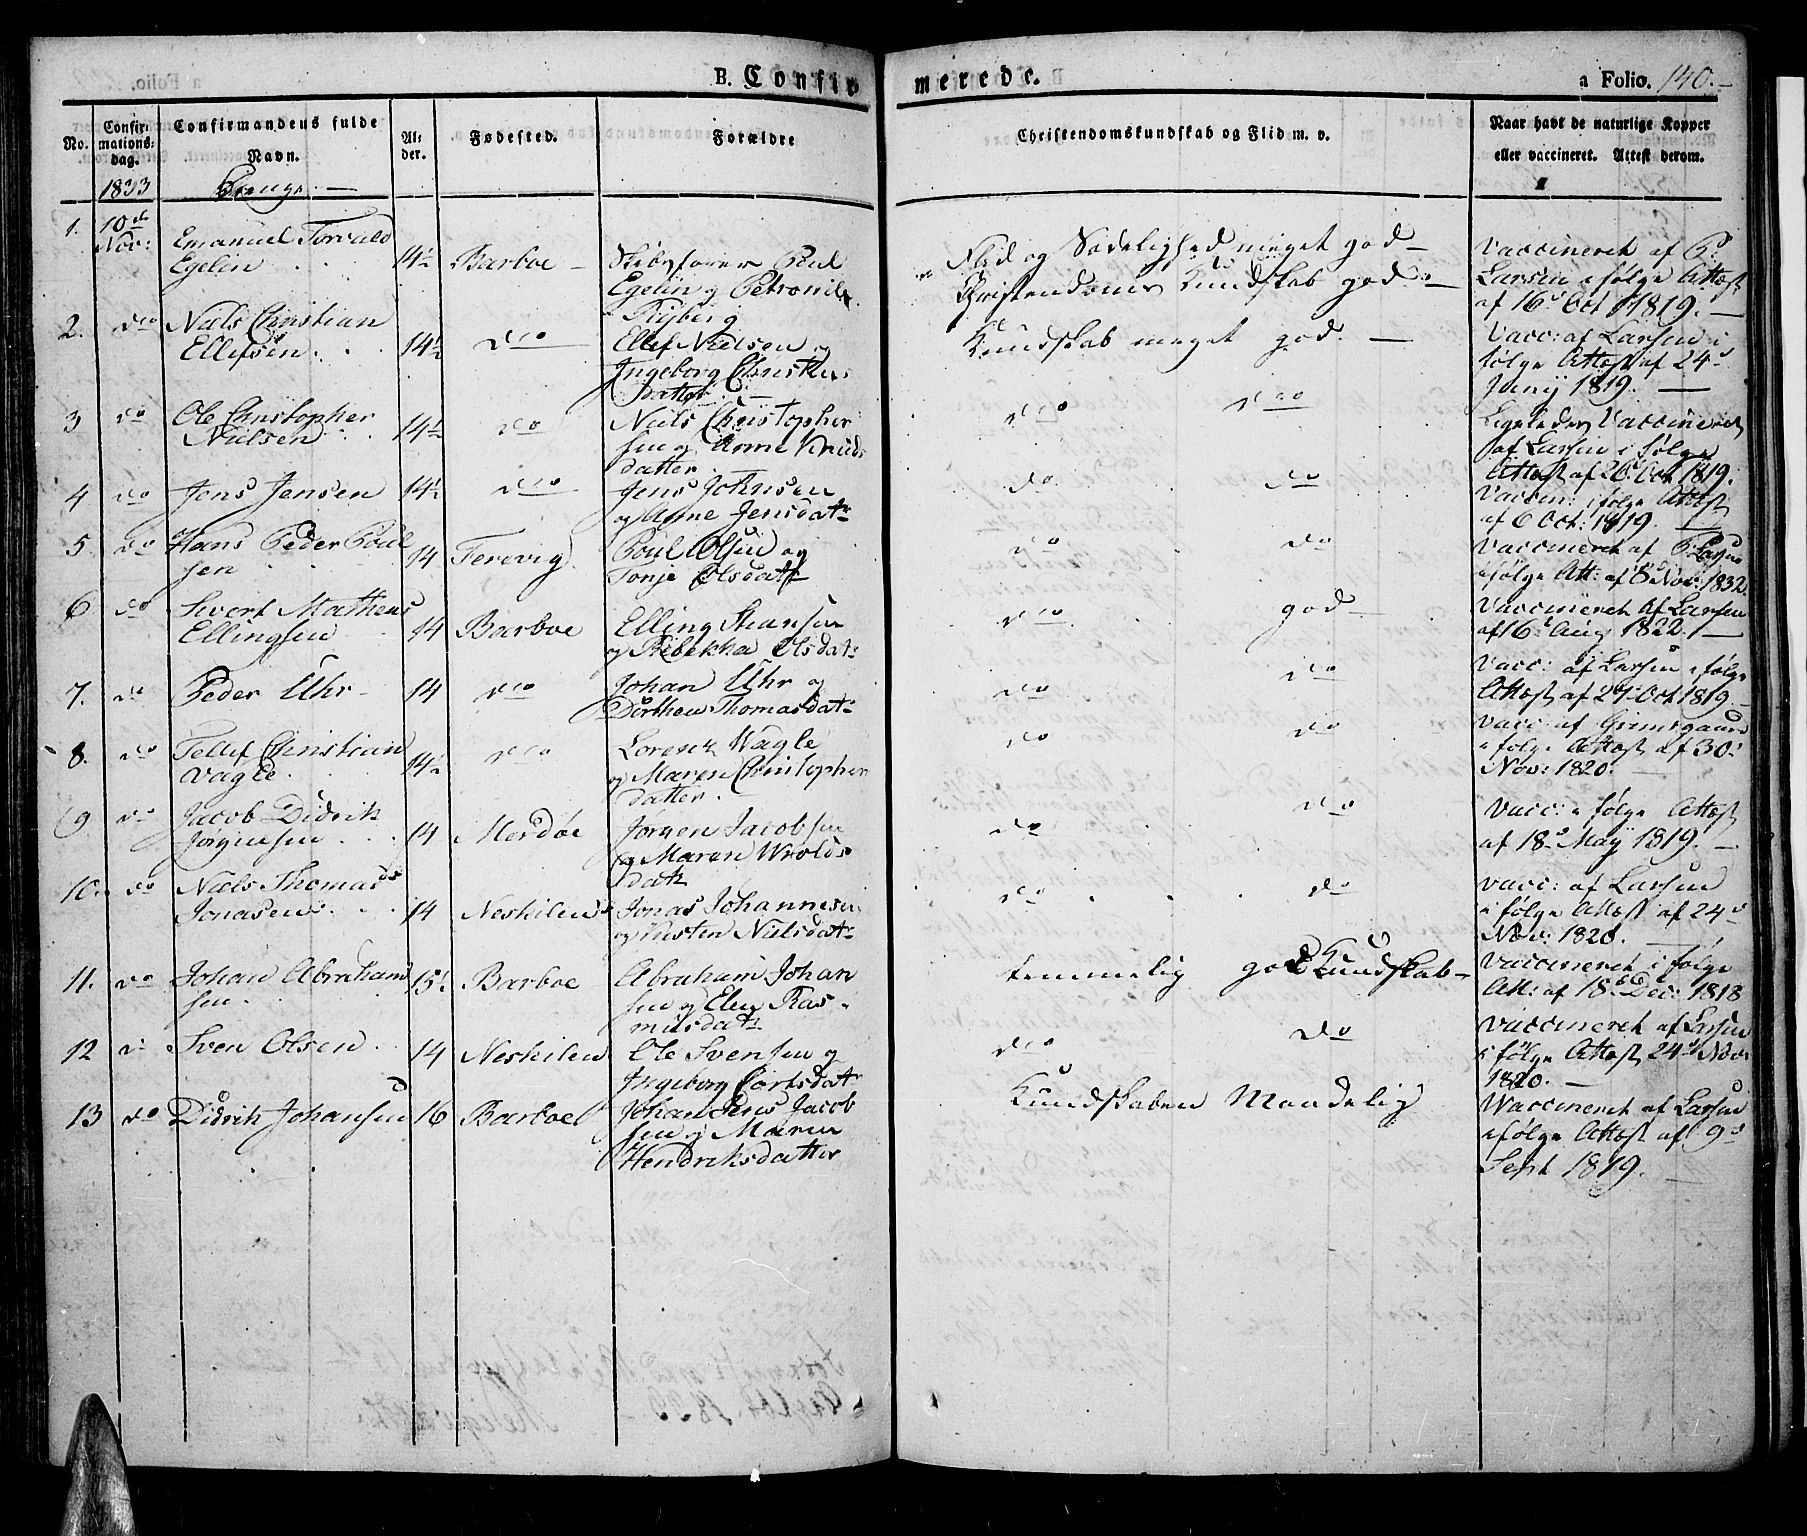 B. Confirmerede. a Folio. 140.
No. Confirmationsdag. Confirmandens fulde Navn. Alder. Fødested. Forældre Christendomskundskab og Flid m. v. Naar havt de naturlige Kopper eller vaccineret. Attest derom.
1833 Drenge
1. 10de Nov: Emanuel Torvald
Egelin 14½ Barboe
Egelin og Petronil
Ryberg
Flid og Sædelighed meget god
Christendoms Kundskab god
Vaccineret af P.
Larsen i følge Attest
af 16d Oct 1819.
2. do Niels Christian
Ellefsen 14½ do
Ellef Nielsen og
Ingeborg Christens
datter
Kundskab meget god.
Vacc: af Larsen i
følge Attest af 24d
Juny 1819.
3 do Ole Christopher
Nielsen 14½ do
Niels Christopher
sen og Anne Knuds
datter.
do do
Ligeledes Vaccineret
af Larsen i følge
Attest af 26 Oct 1819.
4 do Jens Jensen 14½ do
Jens Johnsen
og Anne Jensdatr
do do
Vaccin: i følge Attest
af 6 Oct: 1819.
5. do Hans Peder Poul
sen 14 Terevig
Poul Olsen og
Tonje Olsdatr
do do
Vaccineret af P Larsen
i følge Att: af 8d Nov: 1832.
6 do Sivert Matheus
Ellingsen 14 Barboe
Elling
og Rebekka Olsdatr
do god
Vaccineret af Larsen
af 16d Aug 1822.
7. do Peder Uhr 14 do
Johan Uhr og
Dorthea Thomasdatr
do do
Vacc: af Larsen i følge
Attest af 27 Oct 1819.
8. do Tellef Christian
Vagle. 14½ do
Lorenz Wagle
og Maren Christopher
datter.
do do
Vacc: af Grimsgaard
i følge Attest af 30d
Nov: 1820.
9 do Jacob Didrik
Jørgensen 14 Merdøe
Jørgen Jacobsen
og Maren Wrolds
datr
do do
Vacc: i følge Attest
af 18d May 1819.
10. do Niels Thomas
Jonasen 14 Neskilen
Jonas Johannesen
og Kirsten Nielsdatr
do do
Vacc: af Larsen
i følge Attest af 24d
Nov: 1820.
11. do Johan Abraham
sen 15½ Barboe
Abraham Johan
sen og Elen Ras
musdatr
temmelig god Kundskab
Vaccineret i følge
Att: af 18de Dec: 1818
12 do Sven Olsen 14 Neskilen
Ole Svensen og
Ingeborg Carlsdatr
do do
Vaccineret af Larsen
i følge Attest 24d Nov:
1820.
13 do Didrik Johansen 16 Barboe
Johan Jens Jacob
sen og Maren
Hendriksdatter
Kundskaben Maadelig
Vaccineret af Larsen
i følge Attest af 9d
Sept 1819.